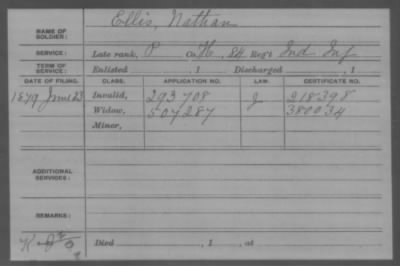 Ellis, Nathan
NAME OF SOLDIER:
SERVICE: Late rank, P Co. H, 84 Reg't Ind Inf
TERM OF SERVICE: Enlisted , 1 Discharged , 1
DATE OF FILING. CLASS. APPLICATION NO. LAW. CERTIFICATE NO.
1879 June 23 Invalid, 293 708 218398
Widow, 507287 380034
Minor,
ADDITIONAL SERVICES:
REMARKS:
Died , 1 , at